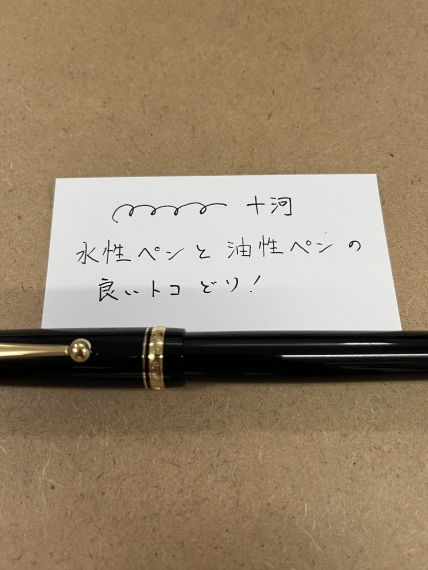 十河
水性ペンと油性ペンの
良いトコどり!